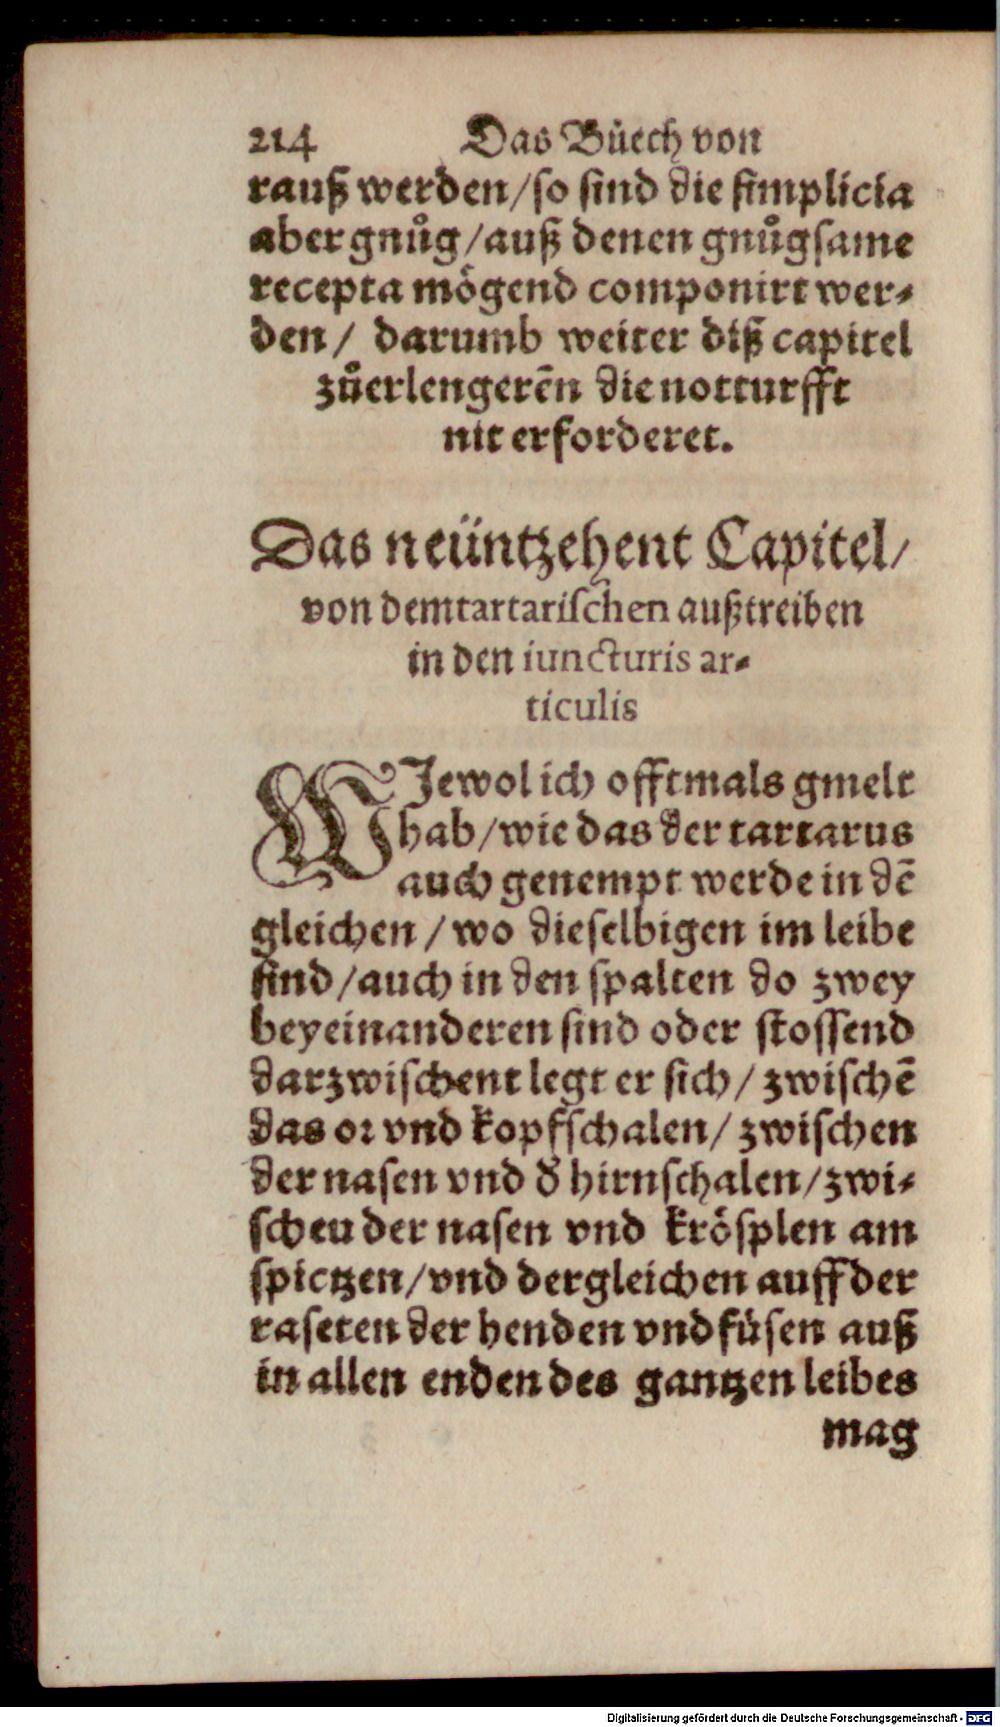 214 Das Bůech von
rauß werden/so sind die simplicia
aber gnůg/auß denen gnůgsame
recepta mögend componirt wer⸗
den/ darumb weiter diß capitel
zůerlengerẽn die notturfft
nit erforderet.
Das neüntzehent Capitel/
von dem tartarischen außtreiben
in den iuncturis ar⸗
ticulis
WJewol ich offtmals gmelt
hab/wie das der tartarus
auch genempt werde in dẽ
gleichen/wo dieselbigen im leibe
sind/auch in den spalten do zwey
beyeinanderen sind oder stossend
darzwischent legt er sich/zwischẽ
das oꝛ vnd kopfschalen/zwischen
der nasen vnd d̕ hirnschalen/zwi⸗
scheu der nasen vnd krösplen am
spictzen/vnd dergleichen auff der
raseten der henden vnd füsen auß
in allen enden des gantzen leibes
mag
Digitalisierung gefördert durch die Deutsche Forschungsgemeinschaft - DFG